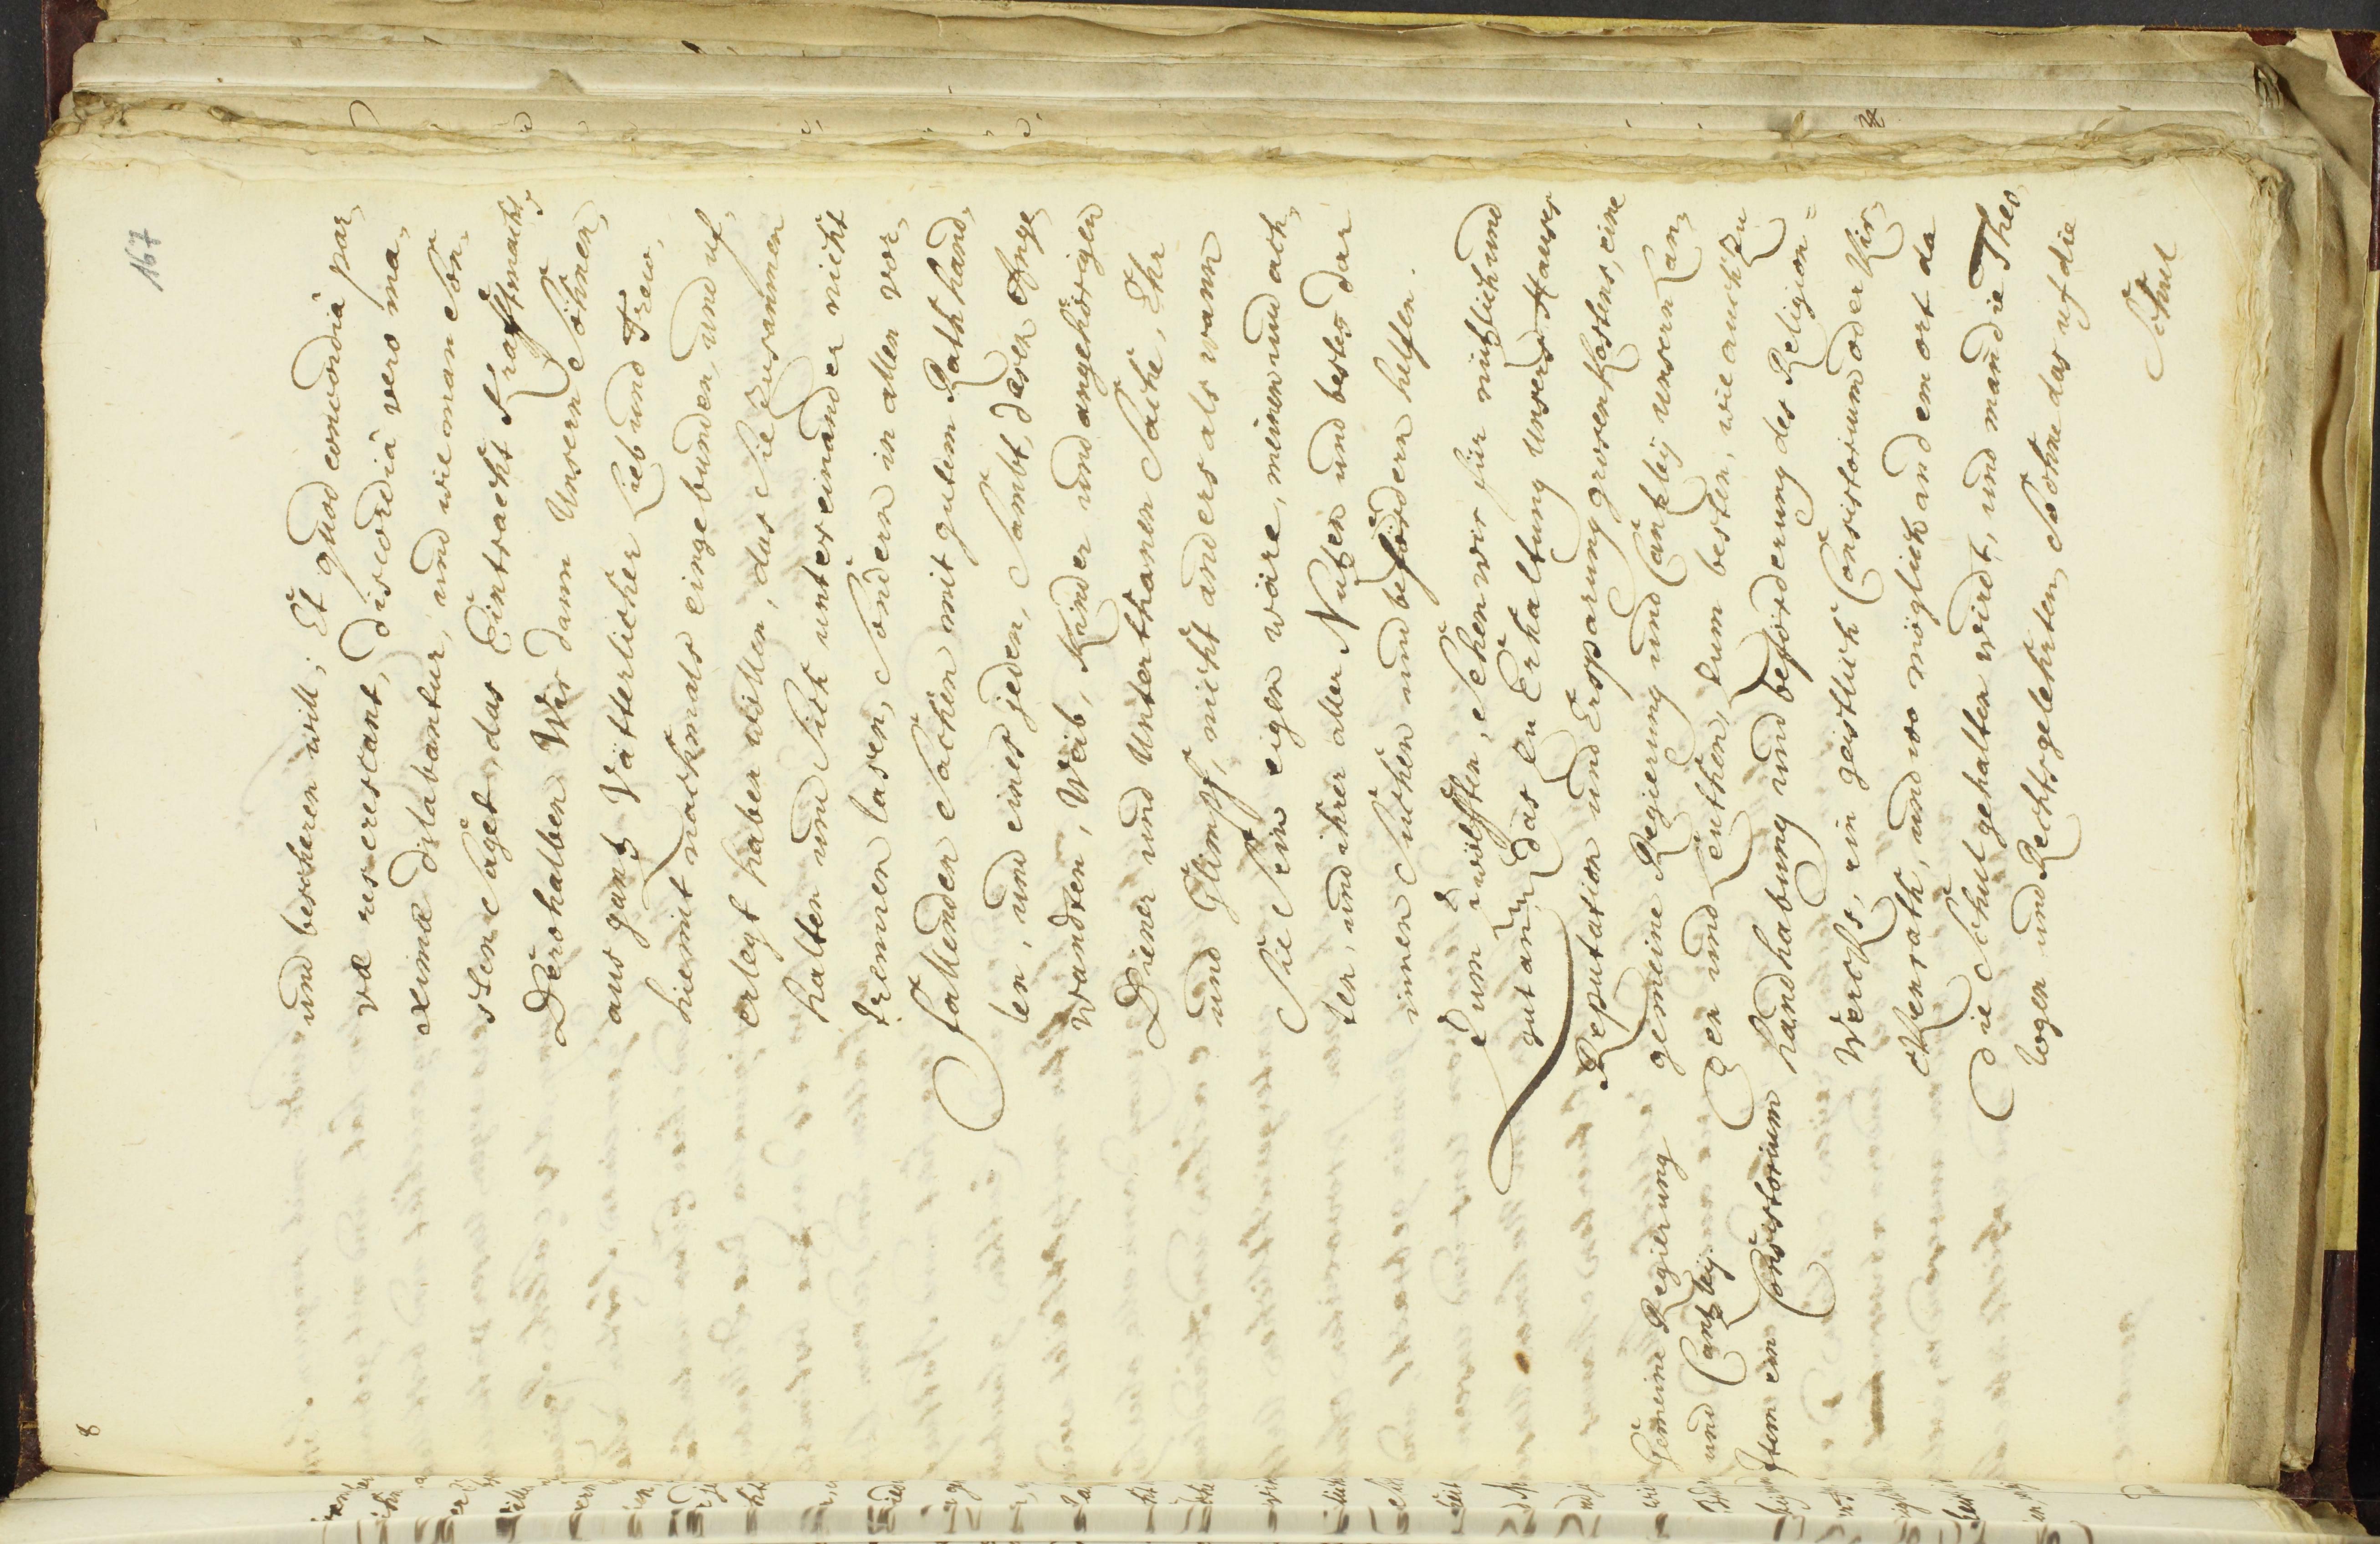 167
und bescheren will; Et quod concordiâ par,
væ res crescant, discordiâ vero ma,
ximæ dilabantur, und wie man Son,
sten saget, das Eintracht Krafft macht,
Derohalben Wir dann Unsern Söhnen,
aus gantz Vätterlicher Lieb und Trew,
hiemit nachmals eingebunden, und uf,
erlegt haben wollen, das Sie zusammen
halten und Sich untereinander nicht
trennen lasen, Sondern in allen vor,
fallenden Sachen mit gutem Rath hand,
len, und eines jeden, Sambt deren Ange,
wandten, Weib, Kinder und angehörigen
Diener und Unterthanen Sache, Ehr
und Glimpf, nicht anders als wann
Sie Sein eigen wäre, meinen und ach,
ten, und ihrer aller Nutzen und bestes dar
innen Suchen und befördern helffen.
Zum zwölfften, Sehen wir für nützlich und
gut an, das zu Erhaltung Unsers Hauses
Reputation und Ersparung grosen Kostens, eine
gemeine Regierung und Cantzley unsern Lan,
den und Leuthen, zum besten, wie auch zu
handhabung und beförderung des Religion=
Wercks, ein geistlich Consistorium oder Kir,
chenrath, und wo möglich an dem ort da
die Schul gehalten wirdt, und man die Theo,
logen und Rechtsgelehrten, Söhne das uf die
Schul
Gemeine Regierung
und Cantzley
Item ein Consistorium
8